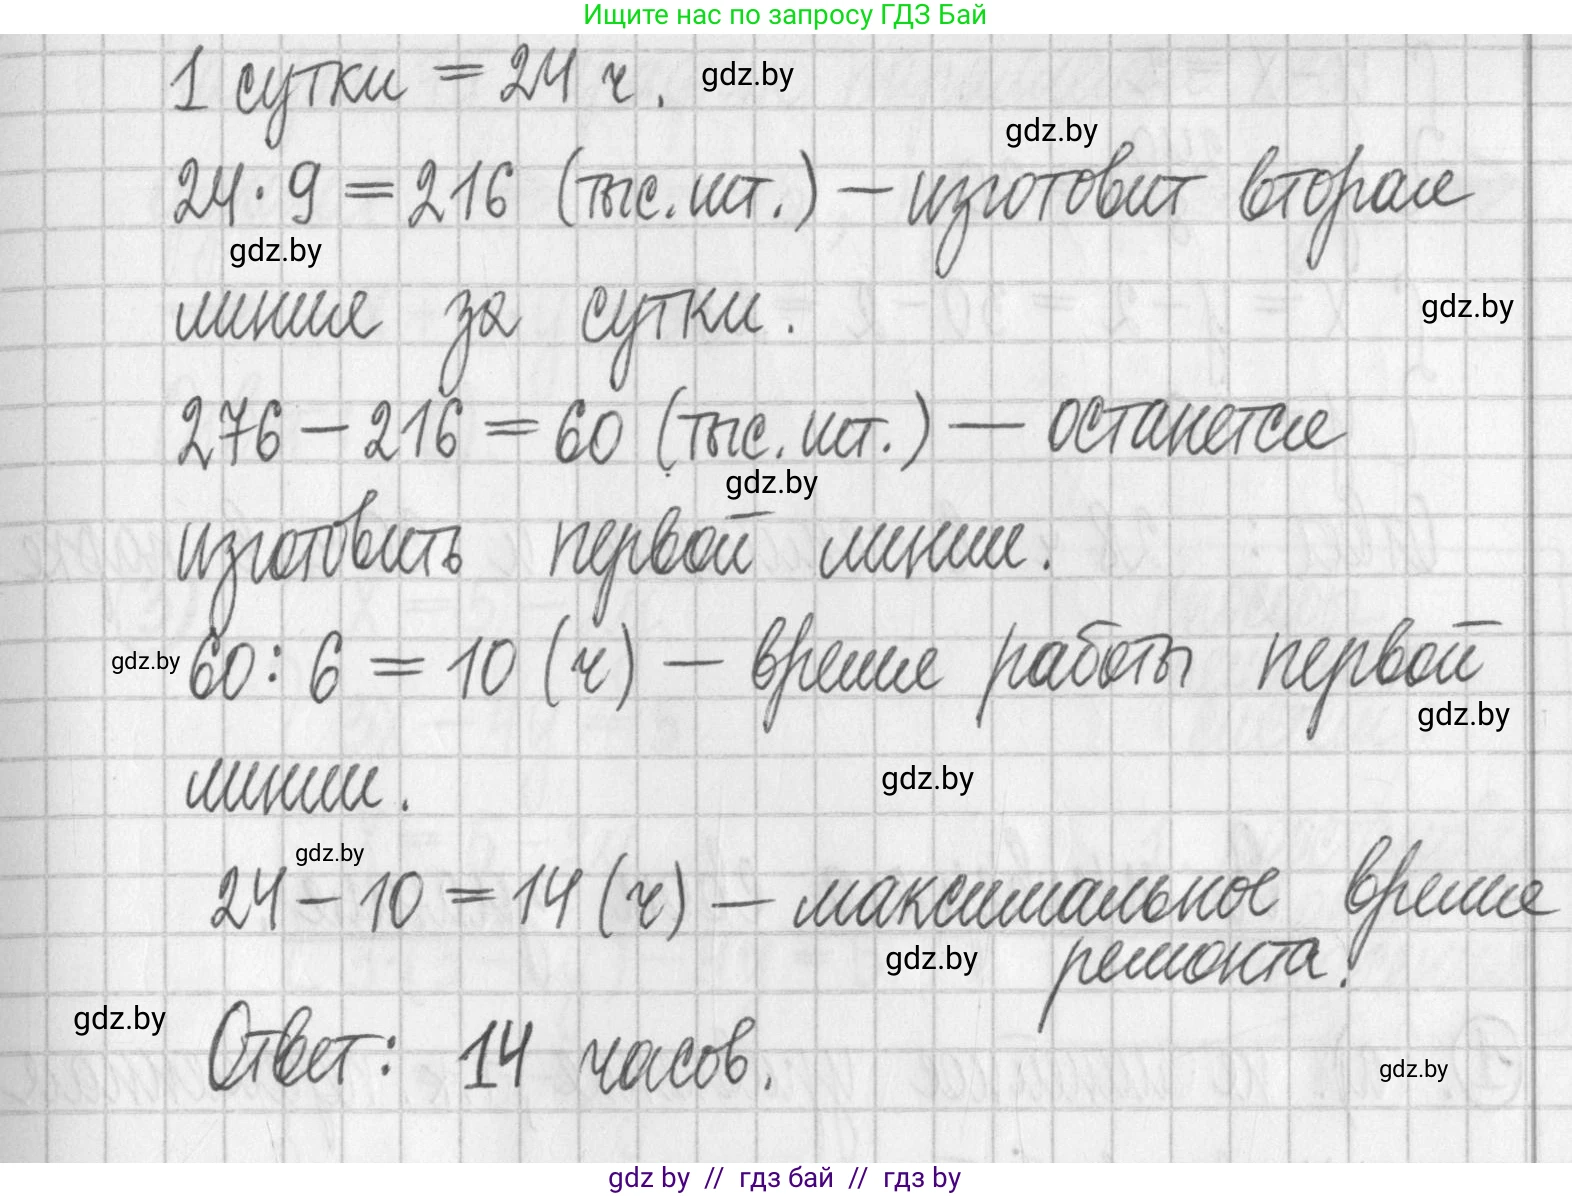 Ищите нас по запросу ГДЗ Бай
1 сутки = 24 ч. gdz.by
gdz.by
24 · 9 = 216 (тыс. шт.) — изготовит вторая
gdz.by
линия за сутки. gdz.by
276 – 216 = 60 (тыс. шт.) — останется
gdz.by
изготовить первой линии.
gdz.by 60 : 6 = 10 (ч) — время работы первой
gdz.by
линии. gdz.by
gdz.by
24 – 10 = 14 (ч) — максимальное время
gdz.by ремонта.
gdz.by
Ответ: 14 часов.
gdz.by
gdz by // гдз бай // гдз by